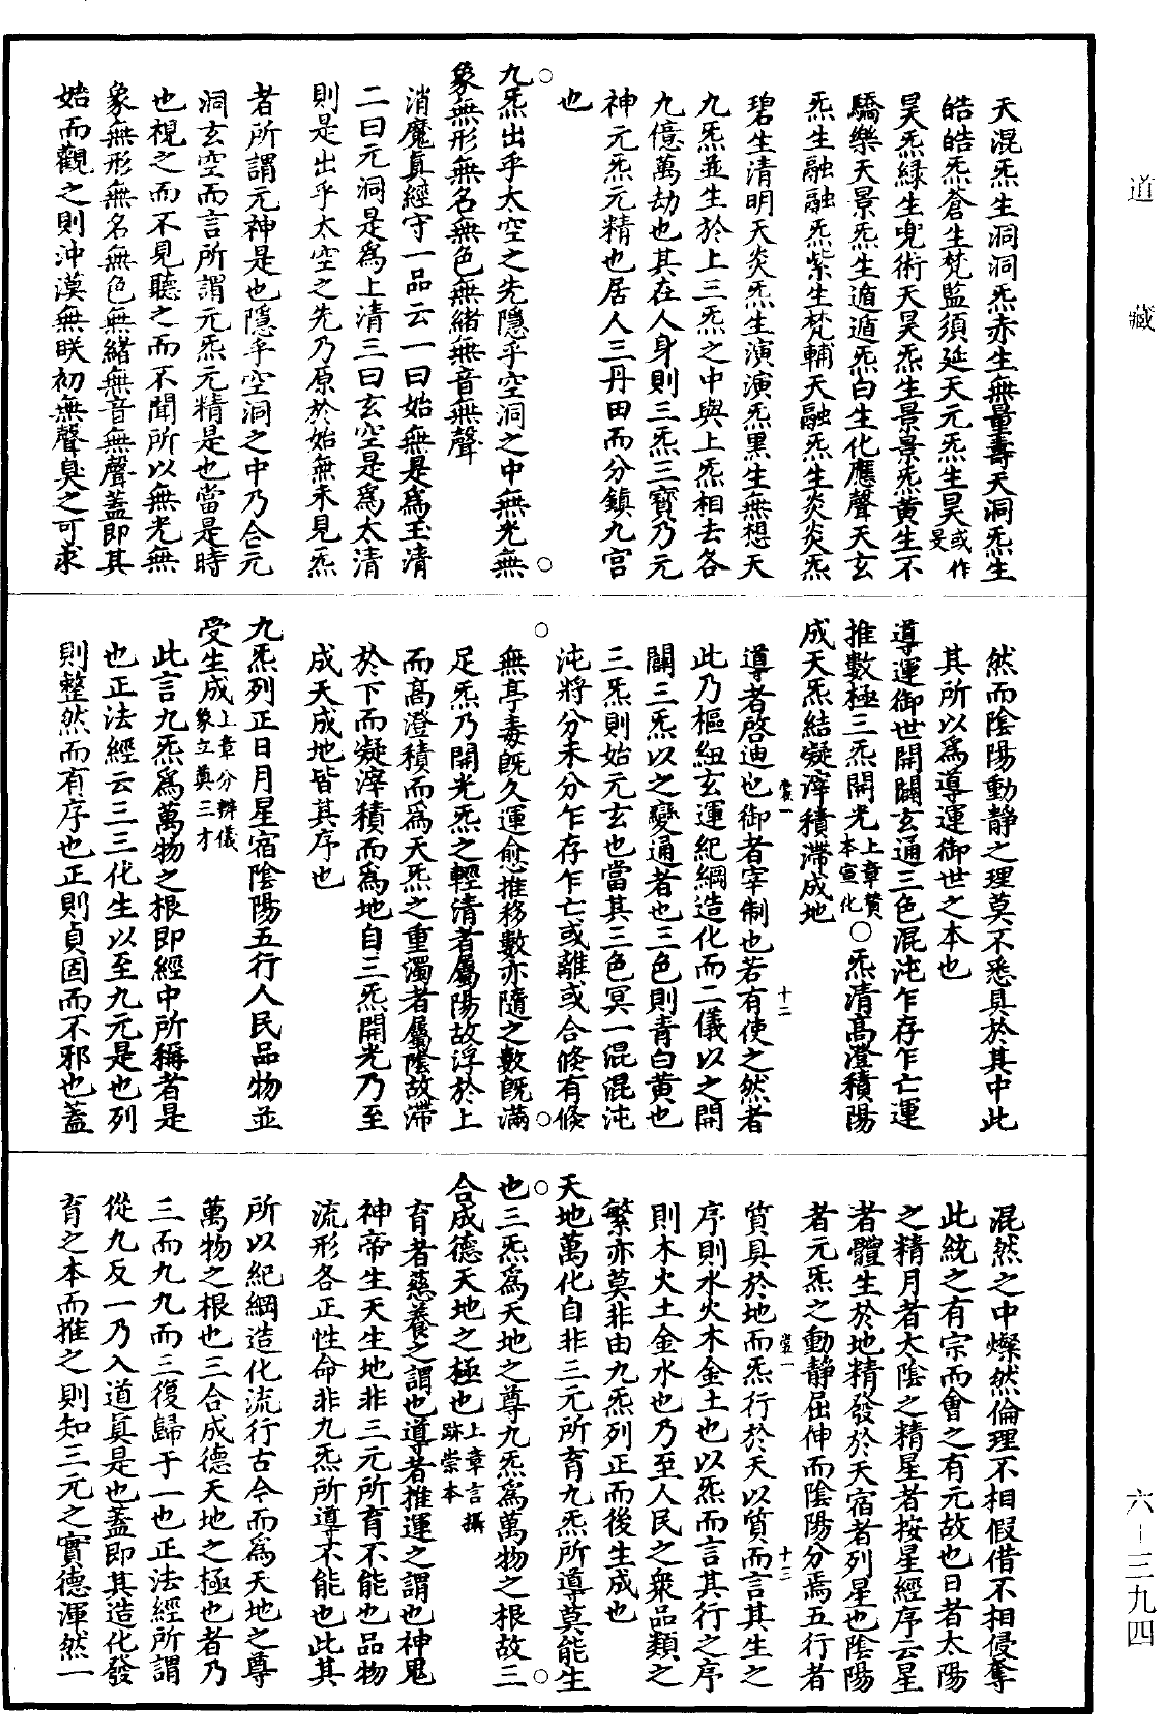 道藏
天混炁生洞洞炁赤生無量壽天洞炁生
皓皓炁蒼生梵監須延天元炁生昊或作旻
昊炁緑生兜術天昊炁生景景炁黄生不
驕樂天景炁生遁遁炁白生化應聲天玄
炁生融融炁紫生梵輔天融炁生炎炎炁
碧生清明天炎炁生演演炁黑生無想天
九炁並生於上三炁之中與上炁相去各
九億萬劫也其在人身則三炁三寶乃元
神元炁元精也居人三丹田而分鎮九宫
也
○九炁出乎太空之先隱乎空洞之中無光無○
象無形無名無色無緒無音無聲
消魔真經守一品云一曰始無是爲玉清
二曰元洞是爲上清三曰玄空是爲太清
則是出乎太空之先乃原於始無未見炁
者所謂元神是也隱乎空洞之中乃合元
洞玄空而言所謂元炁元精是也當是時
也視之而不見聽之而不聞所以無光無
象無形無名無色無緒無音無聲蓋即其
始而觀之則沖漠無眹初無聲臭之可求
然而陰陽動靜之理莫不悉具於其中此
其所以爲導運御世之本也
導運御世開闢玄通三色混沌乍存乍亡運
推數極三炁開光上章贊本宣化○炁清高澄積陽
成天炁結凝滓積滯成地
導者啓迪也御者宰制也若有使之然者
此乃樞紐玄運紀綱造化而二儀以之開
闢三炁以之變通者也三色則青白黄也
三炁則始元玄也當其三色冥一混混沌
沌將分未分乍存乍亡或離或合倏有倏
○無亭毒旣久運愈推移數亦隨之數旣滿○
足炁乃開光炁之輕清者屬陽故浮於上
而高澄積而爲天炁之重濁者屬陰故滯
於下而凝滓積而爲地自三炁開光乃至
成天成地皆其序也
九炁列正日月星宿陰陽五行人民品物並
受生成上章分辨儀象立奠三才
此言九炁爲萬物之根即經中所稱者是
也正法經云三三化生以至九元是也列
則整然而有序也正則貞固而不邪也蓋
混然之中燦然倫理不相假借不相侵奪
此統之有宗而會之有元故也日者太陽
之精月者太陰之精星者按星經序云星
者體生於地精發於天宿者列星也陰陽
者元炁之動靜屈伸而陰陽分焉五行者
質具於地而炁行於天以質而言其生之
序則水火木金土也以炁而言其行之序
則木火土金水也乃至人民之衆品類之
繁亦莫非由九炁列正而後生成也
天地萬化自非三元所育九炁所導莫能生
○也三炁爲天地之尊九炁爲萬物之根故三○
合成德天地之極也上章言攝跡崇本
育者慈養之謂也導者推運之謂也神鬼
神帝生天生地非三元所育不能也品物
流形各正性命非九炁所導不能也此其
所以紀綱造化流行古今而爲天地之尊
萬物之根也三合成德天地之極也者乃
三而九九而三復歸于一也正法經所謂
從九反一乃入道真是也蓋即其造化發
育之本而推之則知三元之實德渾然一
六-三九四